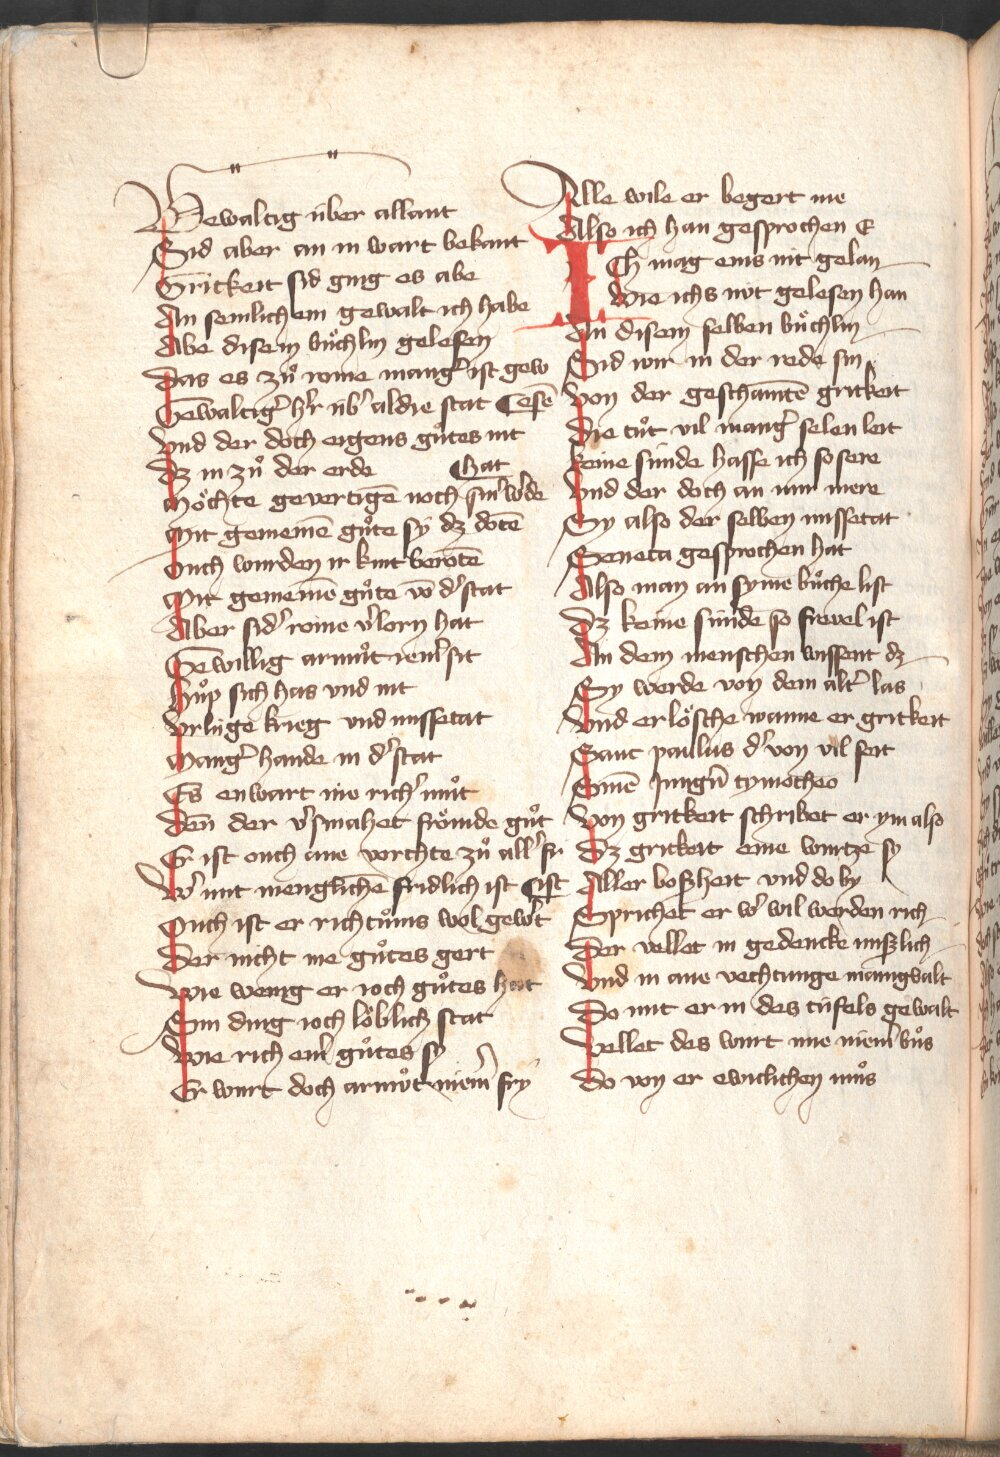 Gewaltig über allant
Sid aber an in wart bekant
Gritkeit sid ging es abe
An semlichem gewalt ich habe
Abe disem buͦchlin gelesen
Das es zuͦ rome mangͤ ist gew
Gewaltigͤ hͤr übͤ al die stat esē
Vnd der doch eigens guͦtes nit
Dz in zuͦ der erde hat
Moͤchte gevertigē noch sinͤ wͤde
Mit gemeinē guͦte sy dz dotē
Ouch wurden ir kint berotē
Mit gemeinē guͦte vō dͤ stat
Aber sidͤ rome vͤlorn hat
Gewillig armuͦt ienͤsit
Huͦp sich has vnd nit
Vrluge krieg vnd missetat
Mangͤ hande in dͤ stat
Es enwart nie richͤ muͦt
Den der vͤsmahet froͤmde guͦt
Er ist ouch ane vorchte zuͦ allͤ fr
Wͤ mit menglichē fridlich ist ist
Ouch ist er richtuͦms wol gewͤt
Der nicht me guͦtes gert
Wie wenig er ioch guͦtes hat
Ein ding ioch loͤblich stat
Wie rich einͤ guͦtes sy
Er wirt doch armuͦt niemͤ fry
Alle wile er begert me
Also ich han gesprochen E
ICh mag eins nit gelan
Wie ichs nvt gelesen han
An disem selben buͦchlin
Sid wir in der rede sin
Von der geschantē gritkeit
Die tuͦt vil mangͤ selen leit
Keine sunde hasse ich so sere
Vnd der doch an mir mere
Sy also der selben missetat
Seneca gesprochen hat
Also man an syme buͦche list
Dz keine sunde so frevel ist
An dem menschen wissent dz
Sy werde von dem altͤ las
Vnd erloͤsche wanne er gritkeit
Sant paulus dͤ von vil seit
Sinē jungͤn tymotheo
Von gritkeit schribet er ym also
Dz gritkeit eine wurtze sy
Aller boszheit vnd do by
Sprichet er wͤ wil werden rich
Der vellet in gedencke misslich
Vnd in ane vechtunge manigvalt
Do mit er in des tüfels gewalt
Vellet des wirt mie niemͤ buͦs
Do von er ewiclichen muͦs